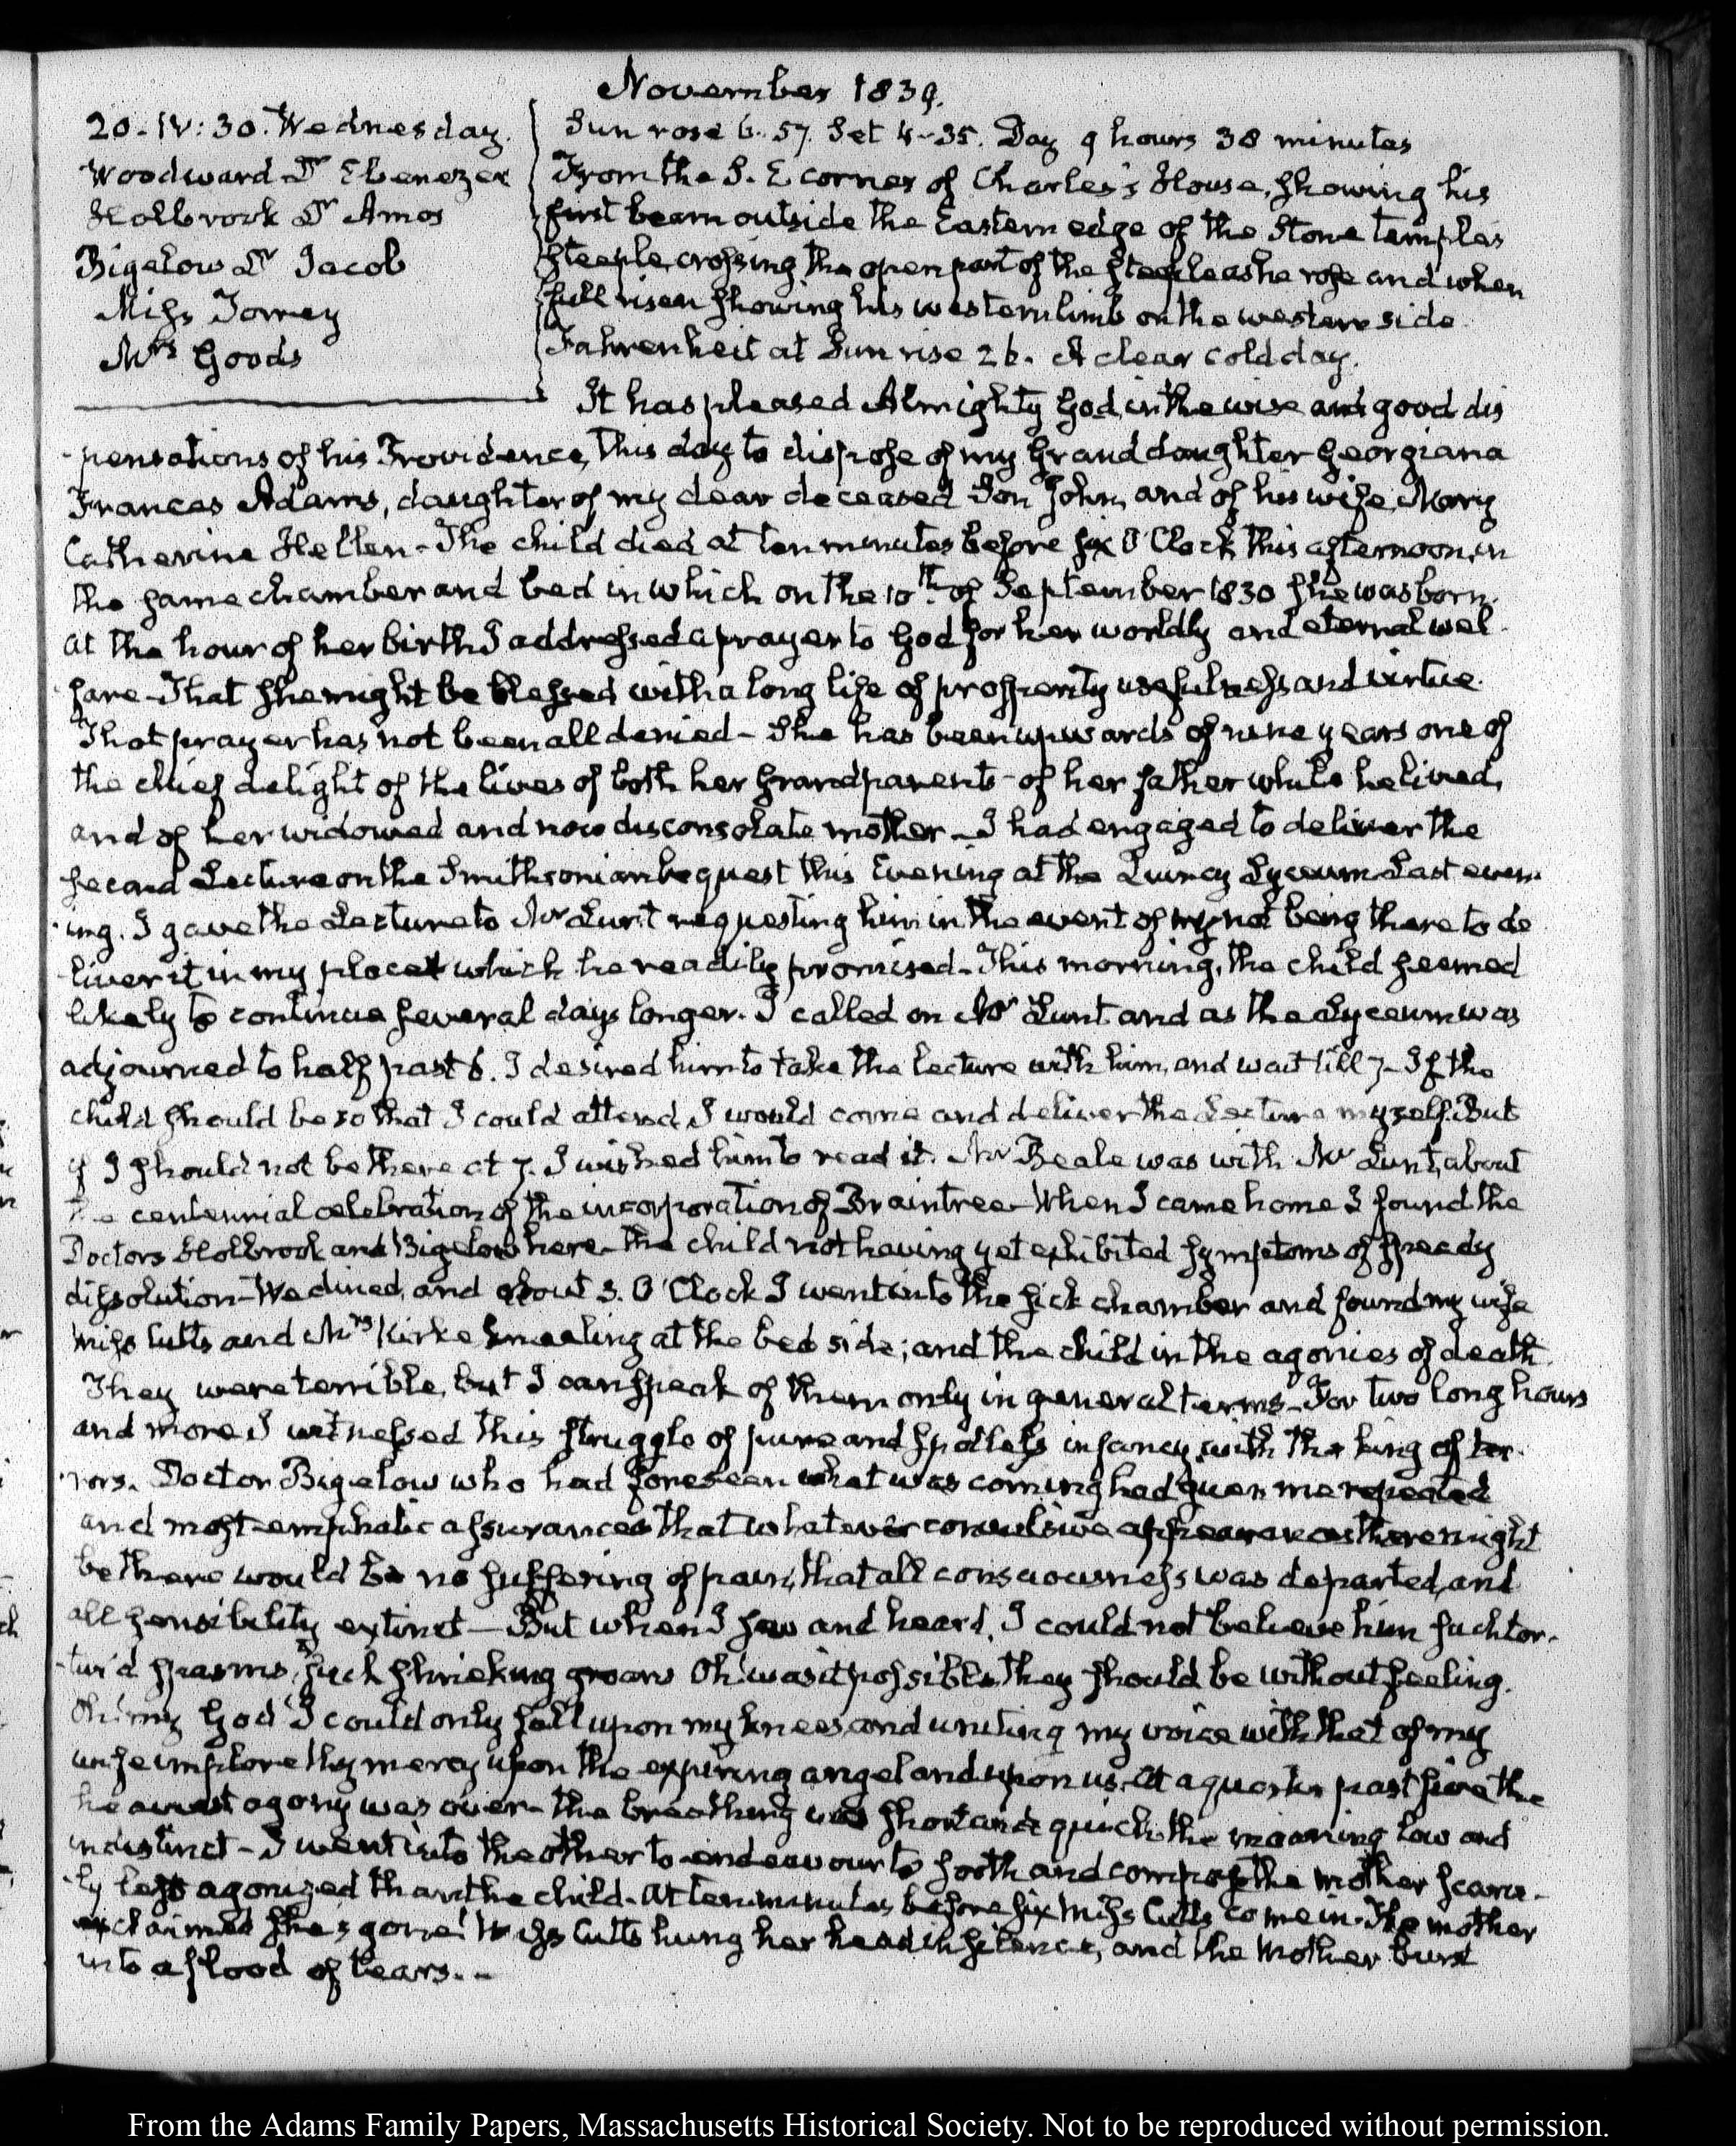 November 1839.
20. IV:30. Wednesday.
Woodward Dr Ebenezer
Holbrook Dr Amos
Bigelow Dr Jacob
Miss Torrey
Mrs Goods
Sun rose 6. 57. Set 4-35. Day 9 hours 38 minutes
From the S. E corner of Charles's House, showing his
first beam outside the Eastern edge of the Stone temples
steeple, crossing the open part of the steeple as he rose and when
full risen showing his western limb on the western side.
Fahrenheit at Sunrise 26. A clear cold day.
It has pleased Almighty God, in the wise and good dis
-pensations of his Providence, this day to dispose of my Granddaughter Georgiana
Frances Adams, daughter of my dear deceased Son John, and of his wife Mary
Catherine Hellen - The child died at ten minutes before six O'Clock this afternoon, in
the same chamber and bed in which on the 10th of September 1830 she was born.
at the hour of her birth I addressed a prayer to God for her worldly and eternal wel
fare - That she might be blessed with a long life of prosperity usefulness and virtue.
That prayer has not been all denied - She has been upwards of nine years one of
the chief delight of the lives of both her Grandparents - of her father while he lived,
and of her widowed and now disconsolate mother - I had engaged to deliver the
second Lecture on the Smithsonian bequest this Evening at the Quincy Lyceum Last even-
-ing. I gave the Lecture to Mr Lunt requesting him in the event of my not being there to de
liver it in my place which he readily promised - This morning, the child seemed
likely to continue several days longer. I called on Mr Lunt and as the Lyceum was
adjourned to half past 6. I desired him to take the lecture with him, and wait till 7 - If the
child should be so that I could attend I would come and deliver the Lecture myself. But
if I should not be there at 7. I wished him to read it. Mr Beale was with Mr Lunt, about
the centennial celebration of the incorporation of Braintree - When I came home I found the
Doctors Holbrook and Bigelow here - the child not having yet exhibited symptoms of speedy
dissolution - We dined, and about 3. O'Clock I went into the sick chamber and found my wife
Miss Cutts and Mrs Kirke kneeling at the bed side; and the child in the agonies of death.
They were terrible, but I can speak of them only in general terms - For two long hours
and more I witnessed this struggle of pure and spotless infancy with the king of ter-
-rors. Doctor Bigelow who had foreseen what was coming had given me repeated
and most emphatic assurances that whatever convulsive appearances there might
be there would be no suffering of pain, that all consciousness was departed, and
all sensibility extinct - But when I saw and heard, I could not believe him such tor-
-tur'd spasms, such shrieking groans Oh! was it possible they should be without feeling.
Oh! my God I could only fall upon my knees and uniting my voice with that of my
wife implore thy mercy upon the expiring angel and upon us. At a quarter past five the
heaviest agony was over - the breathing was short and quick, the moaning low and
indistinct - I went into the other to endeavour to sooth and compose the mother scarce-
-ly less agonized than the child - At ten minutes before six Miss Cutts came in. The mother
exclaimed she's gone! Miss Cutts hung her head in silence, and the Mother burst
into a flood of tears. -
From the Adams Family Papers, Massachusetts Historical Society. Not to be reproduced without permission.